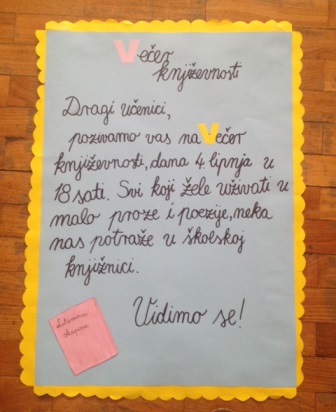 Večer
književnosti
Dragi učenici,
pozivamo vas na Večer
književnosti, dana 4. lipnja u
18 sati. Svi koji žele uživati u
malo proze i poezije, neka
nas potraže u školskoj
knjižnici.
Vidimo se!
Literarna
skupina